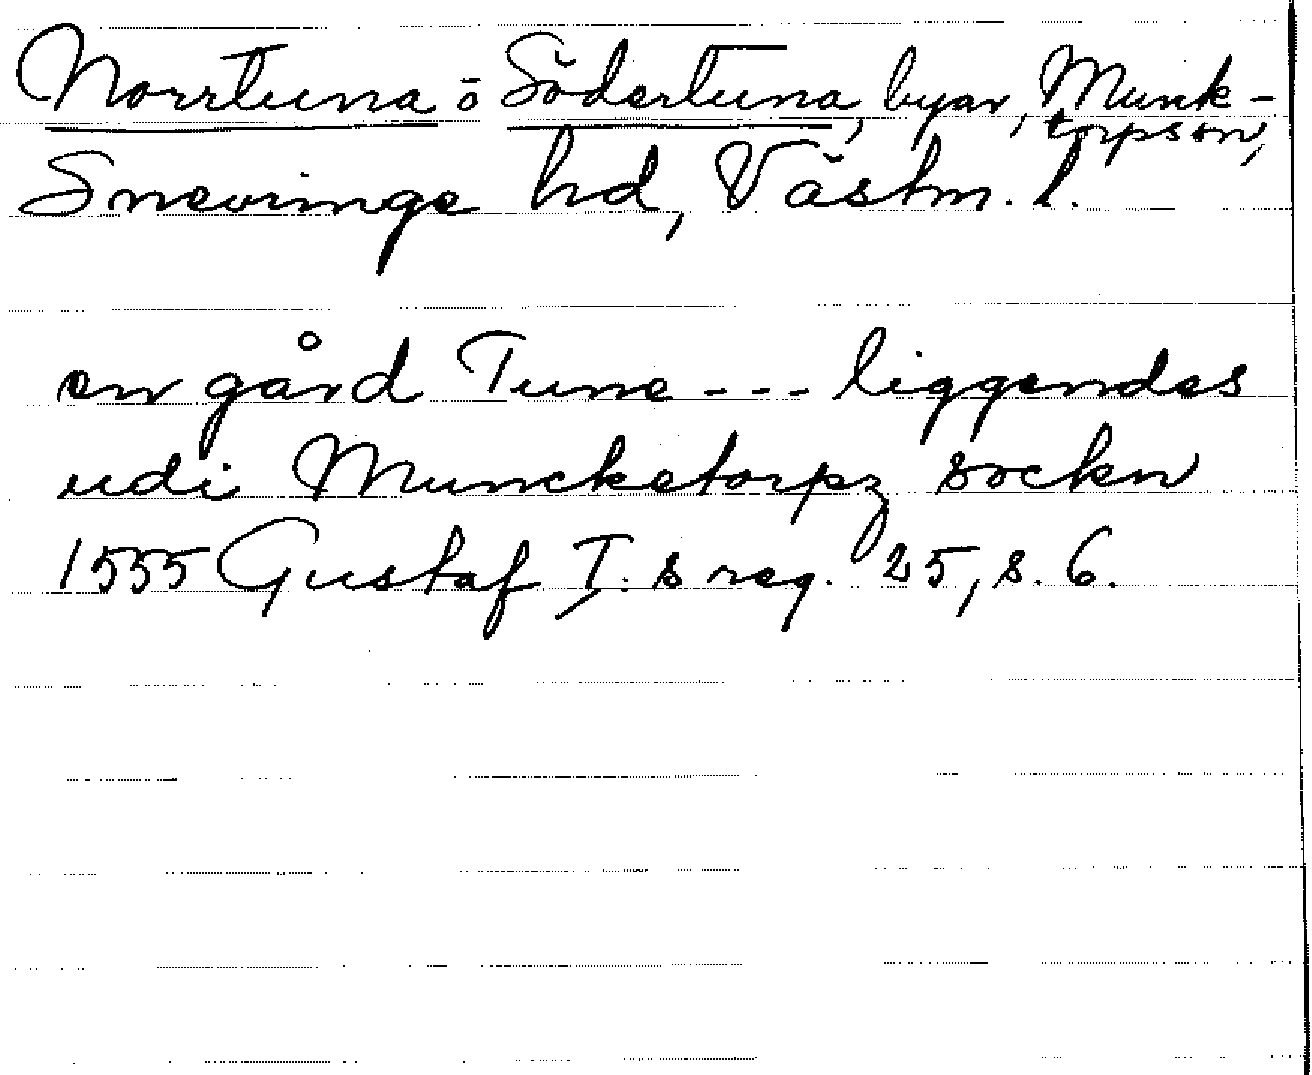 Norrtuna o Södertuna, byar, Munk-
torpssn,
Snevringe hd, Västm. l.
en gård Tune --- liggendes
udi Muncketorpz sockn
1555 Gustaf I. s reg. 25, s. 6.